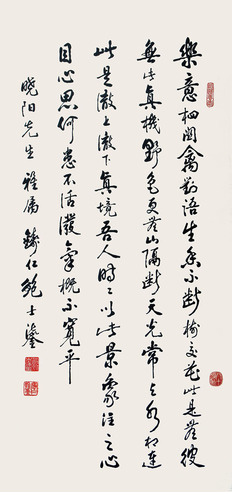 樂意相關禽對語生香不斷樹交花此是無彼
無此真機野色更無山隔斷天光常與水相連
此是徹上徹下真境吾人時々以此景象注之心
目心思何患不活潑氣概不寬平
晓阳先生雅屬 仁鮑士鎏